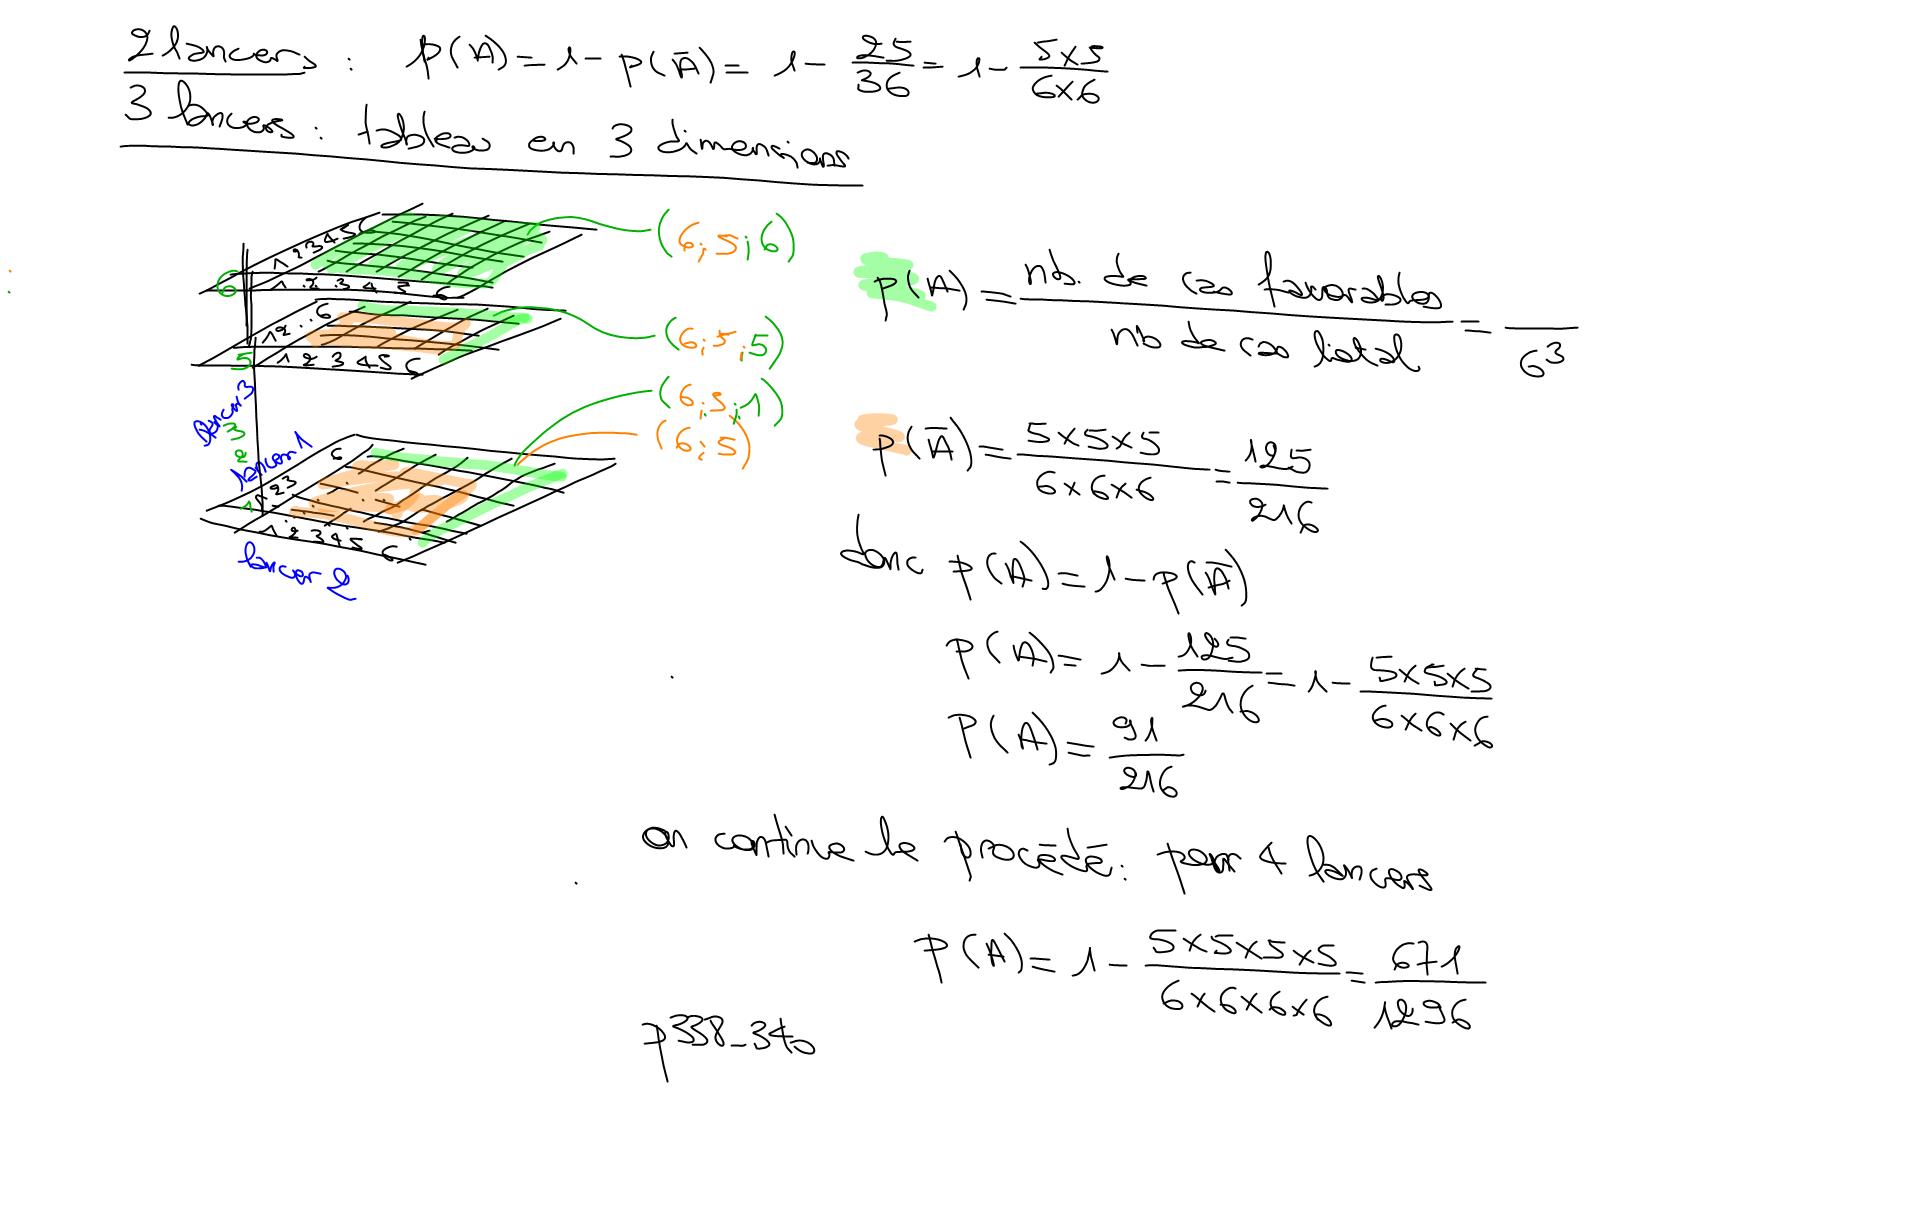 2 lancers : p(A) = 1 - p(Ā) = 1 - 25/36 = 1 - 5×5/6×6
3 lancers : tableau en 3 dimensions
1 2 3 4 5 6
6
1 2 3 4 5 6
(6; 5; 6)
1 2 . . 6
5
1 2 3 4 5 6
(6; 5; 5)
lancer 3
3
2
(6; 5; 1)
(6; 5)
lancer 1
6
1 2 3
1
1 2 3 4 5 6
lancer 2
p(A) = nb. de cas favorables / nb de cas total = /6³
p(Ā) = 5×5×5/6×6×6 = 125/216
donc p(A) = 1 - p(Ā)
p(A) = 1 - 125/216 = 1 - 5×5×5/6×6×6
P(A) = 91/216
on continue le procédé : pour 4 lancers
p(A) = 1 - 5×5×5×5/6×6×6×6 = 671/1296
p338-340